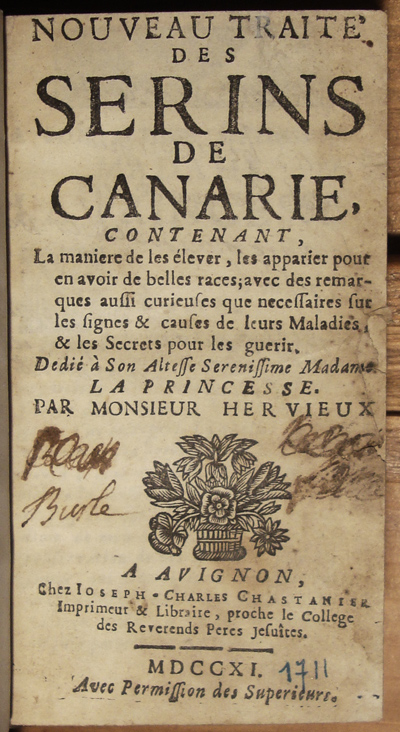 NOUVEAU TRAITÉ
DES
SERINS
DE
CANARIE,
CONTENANT,
La maniere de les élever, les apparier pour
en avoir de belles races; avec des remar-
ques auſſi curieuſes que neceſſaires ſur
les ſignes & cauſes de leurs Maladies,
& les Secrets pour les guerir.
Dedié à Son Alteſſe Sereniſſime Madame
LA PRINCESSE.
PAR MONSIEUR HERVIEUX
A AVIGNON,
Chez IOSEPH-CHARLES CHASTANIER
Imprimeur & Libraire, proche le College
des Reverends Peres Jeſuîtes.
MDCCXI. 1711
Avec Permiſſion des Superieurs.